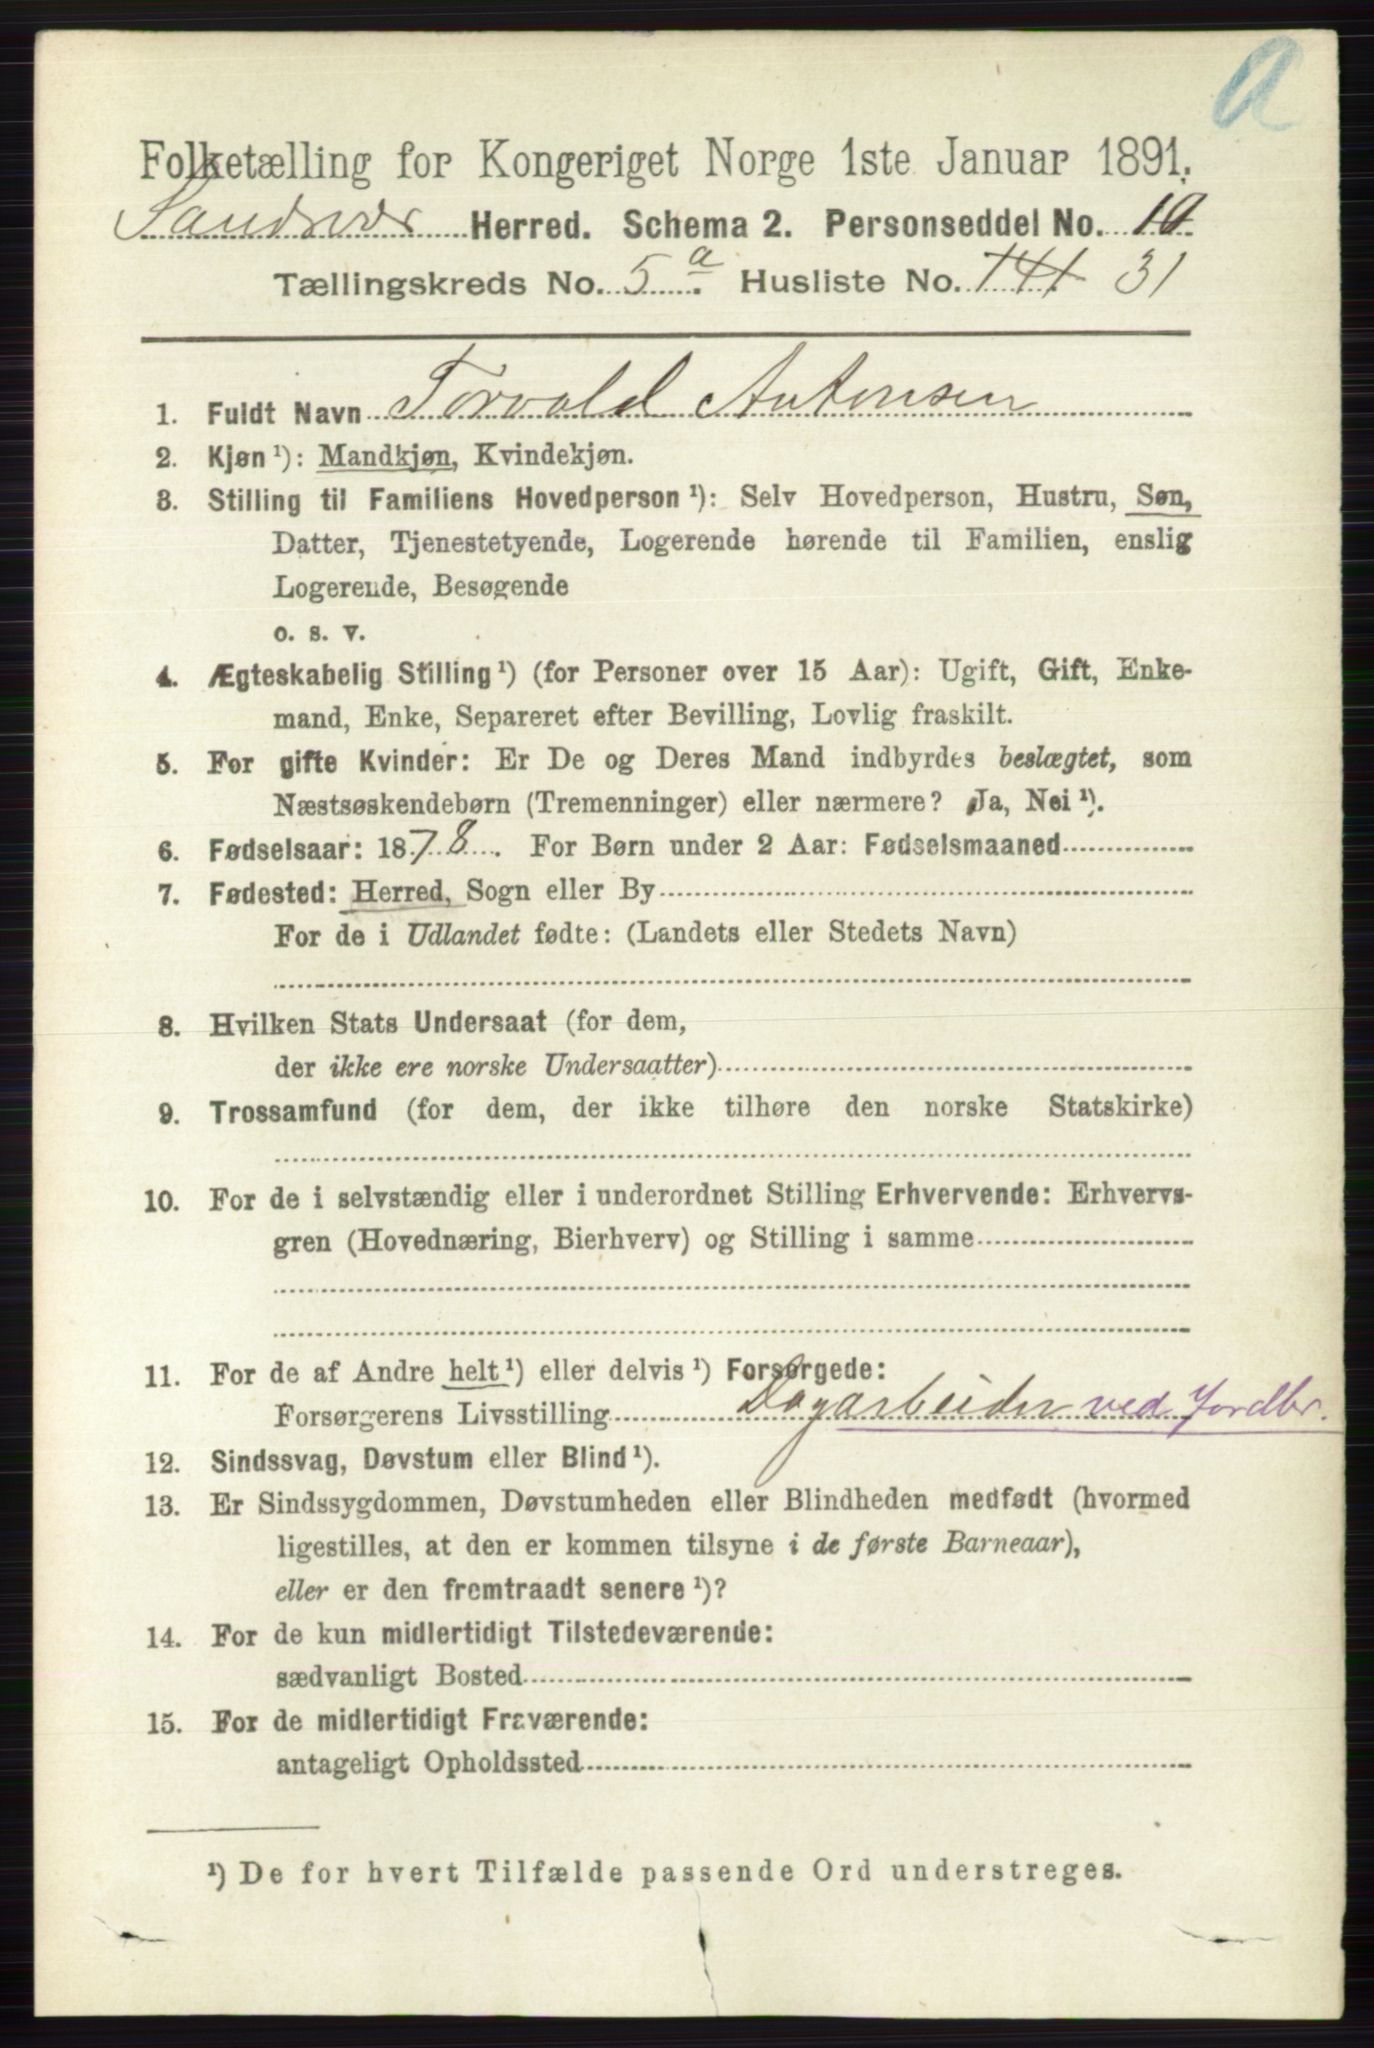 a
Folketælling for Kongeriget Norge 1ste Januar 1891.
Sandsvær Herred. Schema 2. Personseddel No. 10
Tællingskreds No. 5 a. Husliste No. 141 31
1. Fuldt Navn Torvald Antonsen
2. Kjøn ¹): Mandkjøn, Kvindekjøn.
3. Stilling til Familiens Hovedperson ¹): Selv Hovedperson, Hustru, Søn,
Datter, Tjenestetyende, Logerende hørende til Familien, enslig
Logerende, Besøgende
o. s. v.
4. Ægteskabelig Stilling ¹) (for Personer over 15 Aar): Ugift, Gift, Enke-
mand, Enke, Separeret efter Bevilling, Lovlig fraskilt.
5. For gifte Kvinder: Er De og Deres Mand indbyrdes beslægtet, som
Næstsøskendebørn (Tremenninger) eller nærmere? Ja, Nei ¹).
6. Fødselsaar: 1878. For Børn under 2 Aar: Fødselsmaaned
7. Fødested: Herred, Sogn eller By
For de i Udlandet fødte: (Landets eller Stedets Navn)
8. Hvilken Stats Undersaat (for dem,
der ikke ere norske Undersaatter)
9. Trossamfund (for dem, der ikke tilhøre den norske Statskirke)
10. For de i selvstændig eller i underordnet Stilling Erhvervende: Erhvervs-
gren (Hovednæring, Bierhverv) og Stilling i samme
11. For de af Andre helt ¹) eller delvis ¹) Forsørgede:
Forsørgerens Livsstilling Dagarbeider ved Jordbr.
12. Sindssvag, Døvstum eller Blind ¹).
13. Er Sindssygdommen, Døvstumheden eller Blindheden medfødt (hvormed
ligestilles, at den er kommen tilsyne i de første Barneaar),
eller er den fremtraadt senere ¹)?
14. For de kun midlertidigt Tilstedeværende:
sædvanligt Bosted
15. For de midlertidigt Fraværende:
antageligt Opholdssted
¹) De for hvert Tilfælde passende Ord understreges.